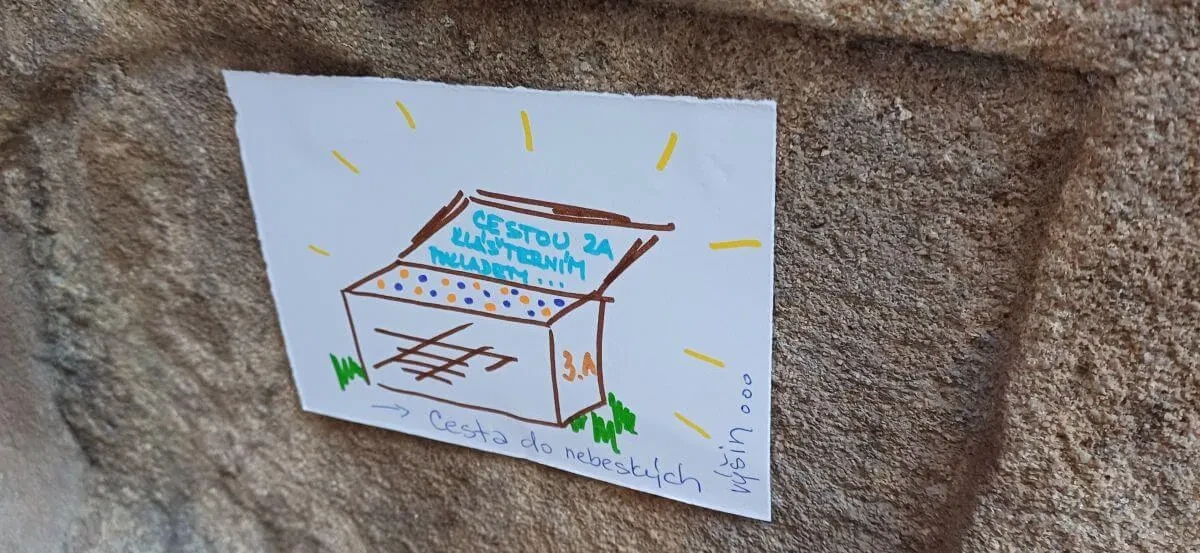 CESTOU ZA
KLÁŠTERNÍM
POKLADEM...
3.A
→ Cesta do nebeských
výšin...